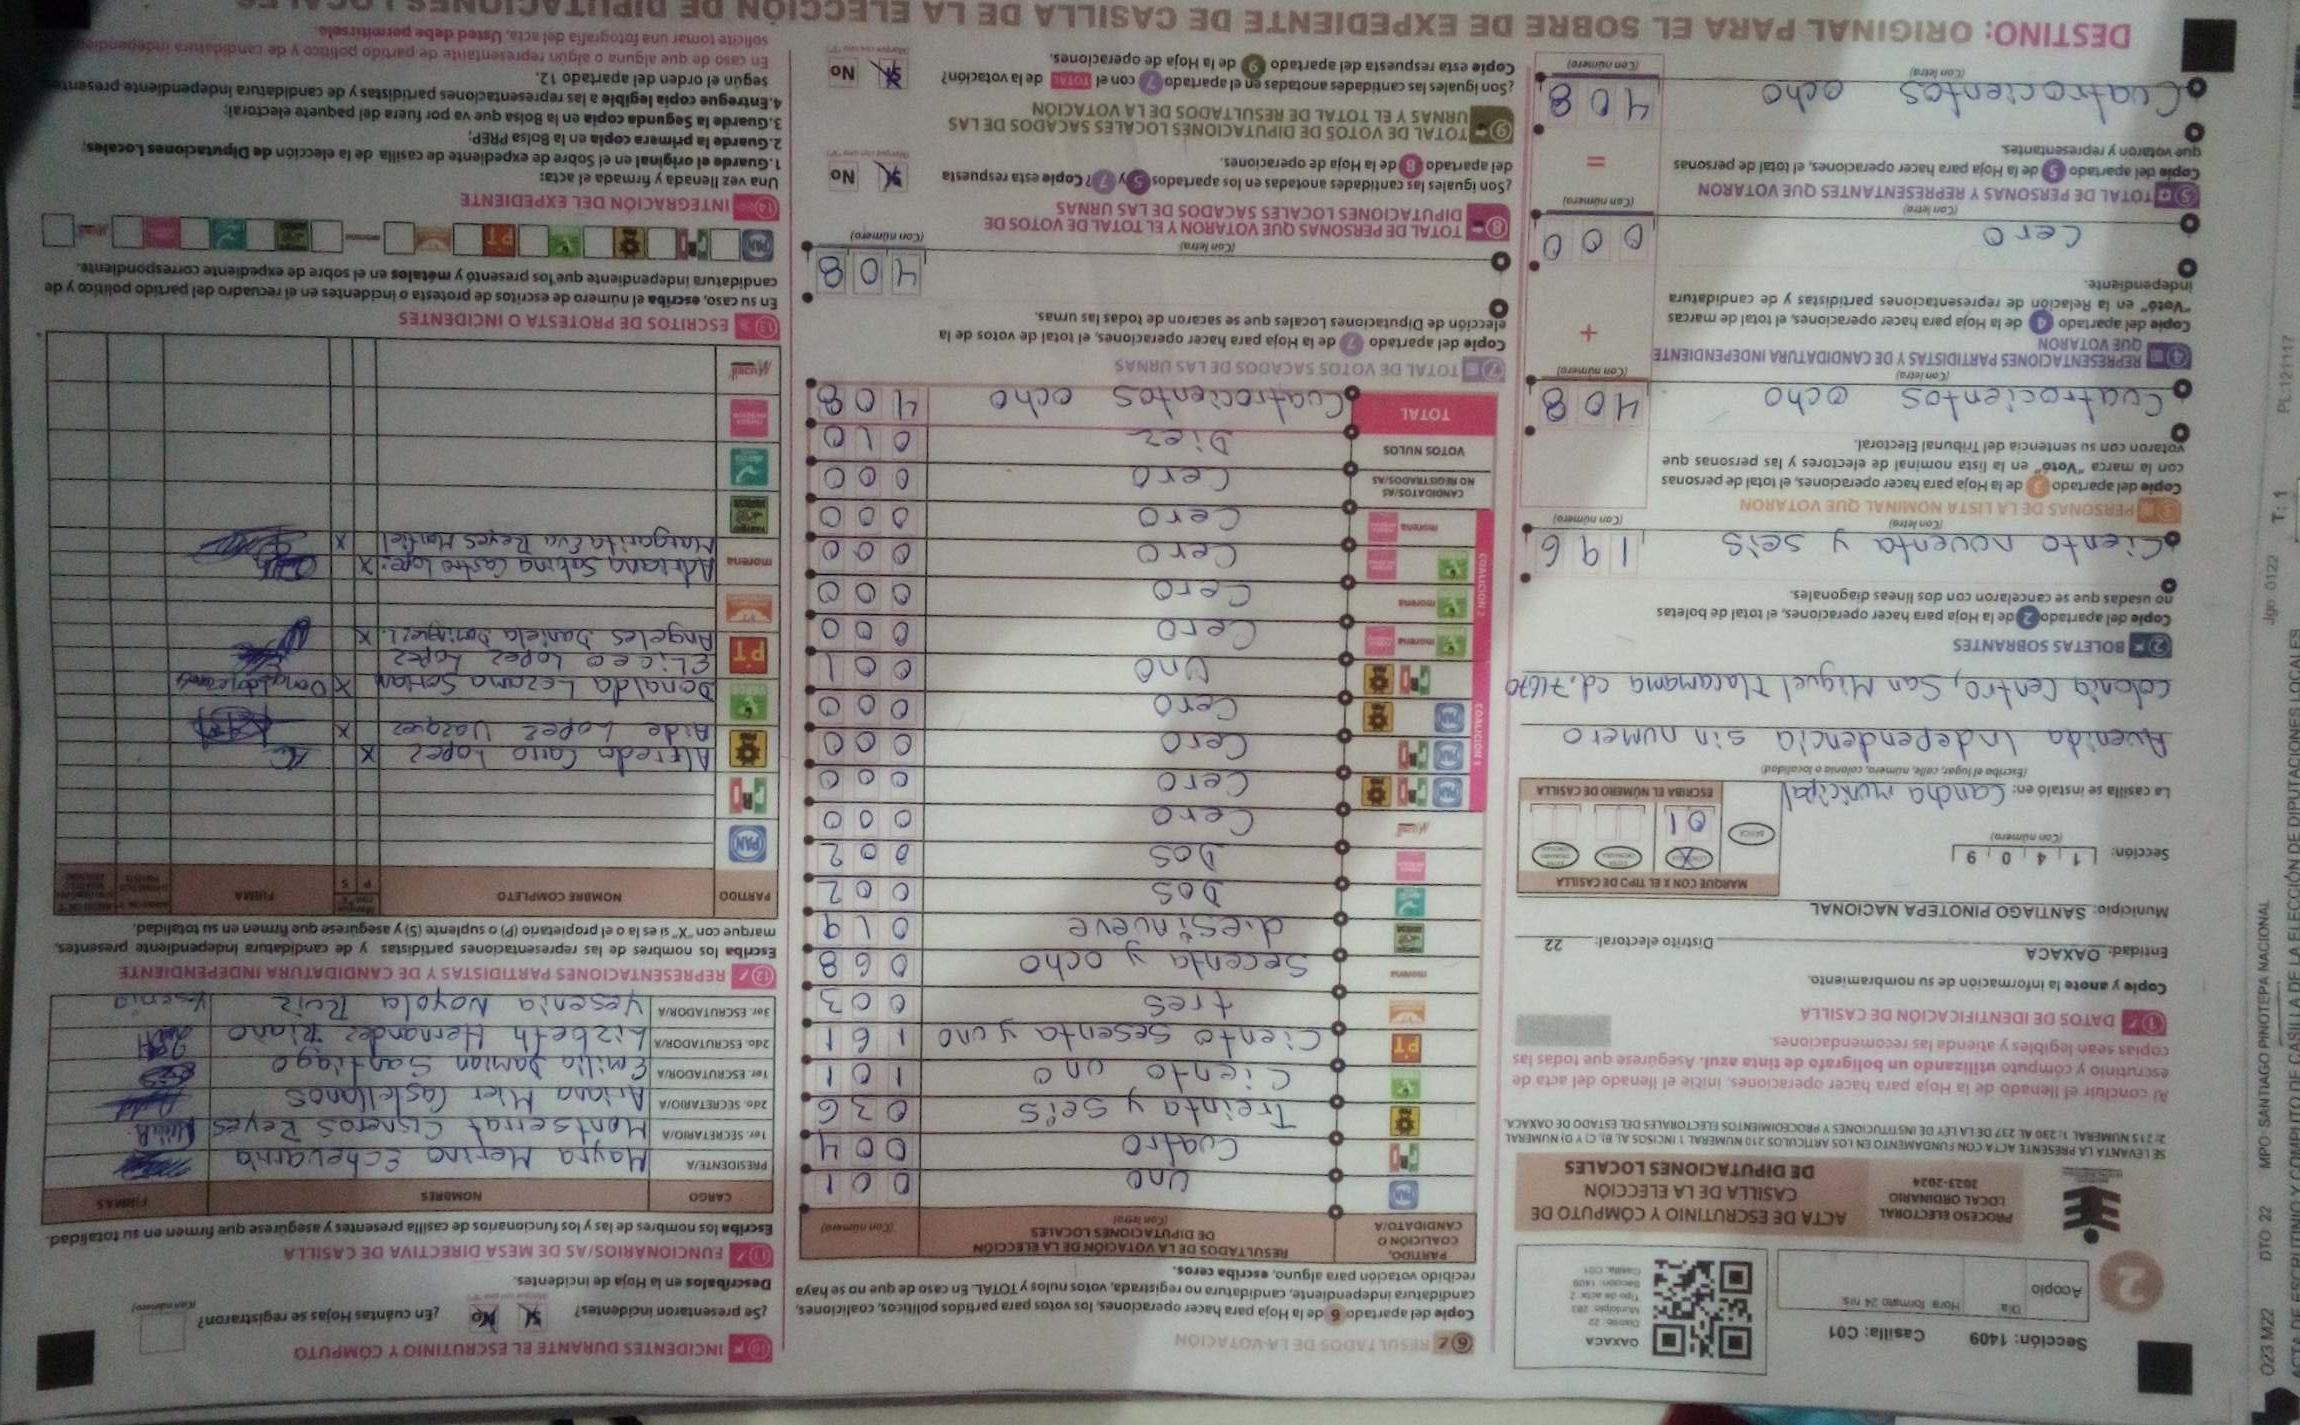 2
Acopio
Día
Hora formato 24 hrs
Sección: 1409 Casilla: C01
OAXACA
Distrito: 22
Municipio: 283
Tipo de acta: 2
Sección: 1409
Casilla: C01
PROCESO ELECTORAL
LOCAL ORDINARIO
2023-2024
ACTA DE ESCRUTINIO Y CÓMPUTO DE
CASILLA DE LA ELECCIÓN
DE DIPUTACIONES LOCALES
SE LEVANTA LA PRESENTE ACTA CON FUNDAMENTO EN LOS ARTÍCULOS 210 NUMERAL 1 INCISOS A), B), C) Y D) NUMERAL
2; 215 NUMERAL 1; 230 AL 237 DE LA LEY DE INSTITUCIONES Y PROCEDIMIENTOS ELECTORALES DEL ESTADO DE OAXACA.
Al concluir el llenado de la Hoja para hacer operaciones, inicie el llenado del acta de
escrutinio y cómputo utilizando un bolígrafo de tinta azul. Asegúrese que todas las
copias sean legibles y atienda las recomendaciones.
1 DATOS DE IDENTIFICACIÓN DE CASILLA
Copie y anote la información de su nombramiento.
Entidad: OAXACA Distrito electoral: 22
Municipio: SANTIAGO PINOTEPA NACIONAL
Sección: 1 4 0 9
(Con número)
MARQUE CON X EL TIPO DE CASILLA
BÁSICA
X
ESCRIBA EL NÚMERO DE CASILLA
01
La casilla se instaló en: Cancha municipal
(Escriba el lugar, calle, número, colonia o localidad)
Avenida Independencia sin numero
colonia Centro, San Miguel Tlacamama cd. 71670
2 BOLETAS SOBRANTES
Copie del apartado 2 de la Hoja para hacer operaciones, el total de boletas
no usadas que se cancelaron con dos líneas diagonales.
Ciento noventa y seis 196
(Con letra) (Con número)
3 PERSONAS DE LA LISTA NOMINAL QUE VOTARON
Copie del apartado 3 de la Hoja para hacer operaciones, el total de personas
con la marca "Votó" en la lista nominal de electores y las personas que
votaron con su sentencia del Tribunal Electoral.
Cuatrocientos ocho 408
(Con letra) (Con número)
4 REPRESENTACIONES PARTIDISTAS Y DE CANDIDATURA INDEPENDIENTE
QUE VOTARON
Copie del apartado 4 de la Hoja para hacer operaciones, el total de marcas
"Votó" en la Relación de representaciones partidistas y de candidatura
independiente.
+
Cero 000
(Con letra) (Con número)
5 TOTAL DE PERSONAS Y REPRESENTANTES QUE VOTARON
Copie del apartado 5 de la Hoja para hacer operaciones, el total de personas
que votaron y representantes.
=
Cuatrocientos ocho 408
(Con letra) (Con número)
6 RESULTADOS DE LA VOTACIÓN
Copie del apartado 6 de la Hoja para hacer operaciones, los votos para partidos políticos, coaliciones,
candidatura independiente, candidatura no registrada, votos nulos y TOTAL. En caso de que no se haya
recibido votación para alguno, escriba ceros.
PARTIDO,
COALICIÓN O
CANDIDATO/A
RESULTADOS DE LA VOTACIÓN DE LA ELECCIÓN
DE DIPUTACIONES LOCALES
(Con letra) (Con número)
PAN Uno 001
PRI Cuatro 004
PRD Treinta y seis 036
Ciento uno 101
PT Ciento Sesenta y uno 161
tres 003
morena Secenta y ocho 068
diesinueve 019
DOS 002
DOS 002
Cero 000
COALICIÓN 1
PAN PRI PRD Cero 000
PAN PRI Cero 000
PAN PRD Cero 000
PRI PRD Uno 001
COALICIÓN 2
morena Cero 000
morena Cero 000
Cero 000
morena Cero 000
CANDIDATOS/AS
NO REGISTRADOS/AS Cero 000
VOTOS NULOS Diez 010
TOTAL Cuatrocientos ocho 408
7 TOTAL DE VOTOS SACADOS DE LAS URNAS
Copie del apartado 7 de la Hoja para hacer operaciones, el total de votos de la
elección de Diputaciones Locales que se sacaron de todas las urnas.
408
(Con letra) (Con número)
8 TOTAL DE PERSONAS QUE VOTARON Y EL TOTAL DE VOTOS DE
DIPUTACIONES LOCALES SACADOS DE LAS URNAS
¿Son iguales las cantidades anotadas en los apartados 5 y 7? Copie esta respuesta
del apartado 8 de la Hoja de operaciones.
Sí No
9 TOTAL DE VOTOS DE DIPUTACIONES LOCALES SACADOS DE LAS
URNAS Y EL TOTAL DE RESULTADOS DE LA VOTACIÓN
¿Son iguales las cantidades anotadas en el apartado 7 con el TOTAL de la votación?
Copie esta respuesta del apartado 9 de la Hoja de operaciones.
Sí No
10 INCIDENTES DURANTE EL ESCRUTINIO Y CÓMPUTO
¿Se presentaron incidentes? Sí No ¿En cuántas Hojas se registraron?
(Con número)
Descríbalos en la Hoja de incidentes.
11 FUNCIONARIOS/AS DE MESA DIRECTIVA DE CASILLA
Escriba los nombres de las y los funcionarios de casilla presentes y asegúrese que firmen en su totalidad.
CARGO NOMBRES FIRMAS
PRESIDENTE/A Mayra Merino Echevarria
1er. SECRETARIO/A Montserrat Cisneros Reyes
2do. SECRETARIO/A Ariana Mier Castellanos
1er. ESCRUTADOR/A Emilia Damian Santiago
2do. ESCRUTADOR/A Lizbeth Hernandez Riaño
3er. ESCRUTADOR/A Yesenia Noyola Ruiz Yesenia
12 REPRESENTACIONES PARTIDISTAS Y DE CANDIDATURA INDEPENDIENTE
Escriba los nombres de las representaciones partidistas y de candidatura independiente presentes,
marque con "X" si es la o el propietario (P) o suplente (S) y asegúrese que firmen en su totalidad.
PARTIDO NOMBRE COMPLETO P S FIRMA
PAN
PRI
PRD Alfredo Castro Lopez X
Aide Lopez Vazquez X
Donalda Lezama X
PT Eliceo Lopez Lopez
Angeles Daniela X
morena Adriana Sabina Castro Lopez X
Margarita Eva Reyes Montiel X
13 ESCRITOS DE PROTESTA O INCIDENTES
En su caso, escriba el número de escritos de protesta o incidentes en el recuadro del partido político y de
candidatura independiente que los presentó y métalos en el sobre de expediente correspondiente.
PAN PRI PRD PT morena
14 INTEGRACIÓN DEL EXPEDIENTE
Una vez llenada y firmada el acta:
1. Guarde el original en el Sobre de expediente de casilla de la elección de Diputaciones Locales;
2. Guarde la primera copia en la Bolsa PREP;
3. Guarde la Segunda copia en la Bolsa que va por fuera del paquete electoral;
4. Entregue copia legible a las representaciones partidistas y de candidatura independiente presentes
según el orden del apartado 12.
En caso de que alguna o algún representante de partido político y de candidatura independiente
solicite tomar una fotografía del acta, Usted debe permitírselo
DESTINO: ORIGINAL PARA EL SOBRE DE EXPEDIENTE DE CASILLA DE LA ELECCIÓN DE DIPUTACIONES LOCALES
O23 M22 DTO 22 MPO: SANTIAGO PINOTEPA NACIONAL Jgo: 0122 T: 1 PL:121117
ACTA DE ESCRUTINIO Y CÓMPUTO DE CASILLA DE LA ELECCIÓN DE DIPUTACIONES LOCALES